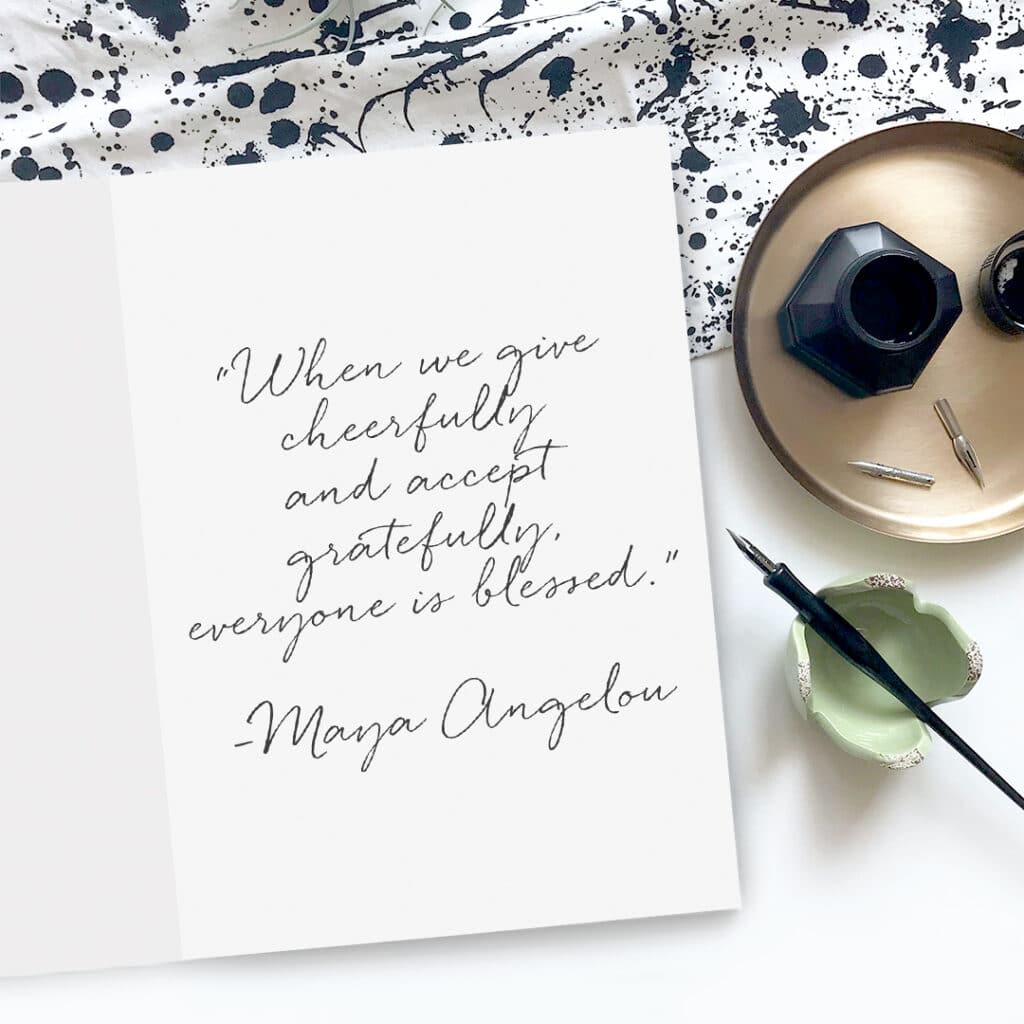 "When we give
cheerfully
and accept
gratefully,
everyone is blessed."
-Maya Angelou